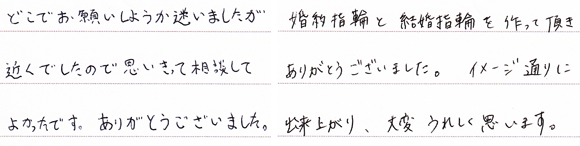 どこでお願いしようか迷いましたが
近くでしたので思いきって相談して
よかったです。ありがとうございました。
婚約指輪と結婚指輪を作って頂き
ありがとうございました。イメージ通りに
出来上がり、大変うれしく思います。